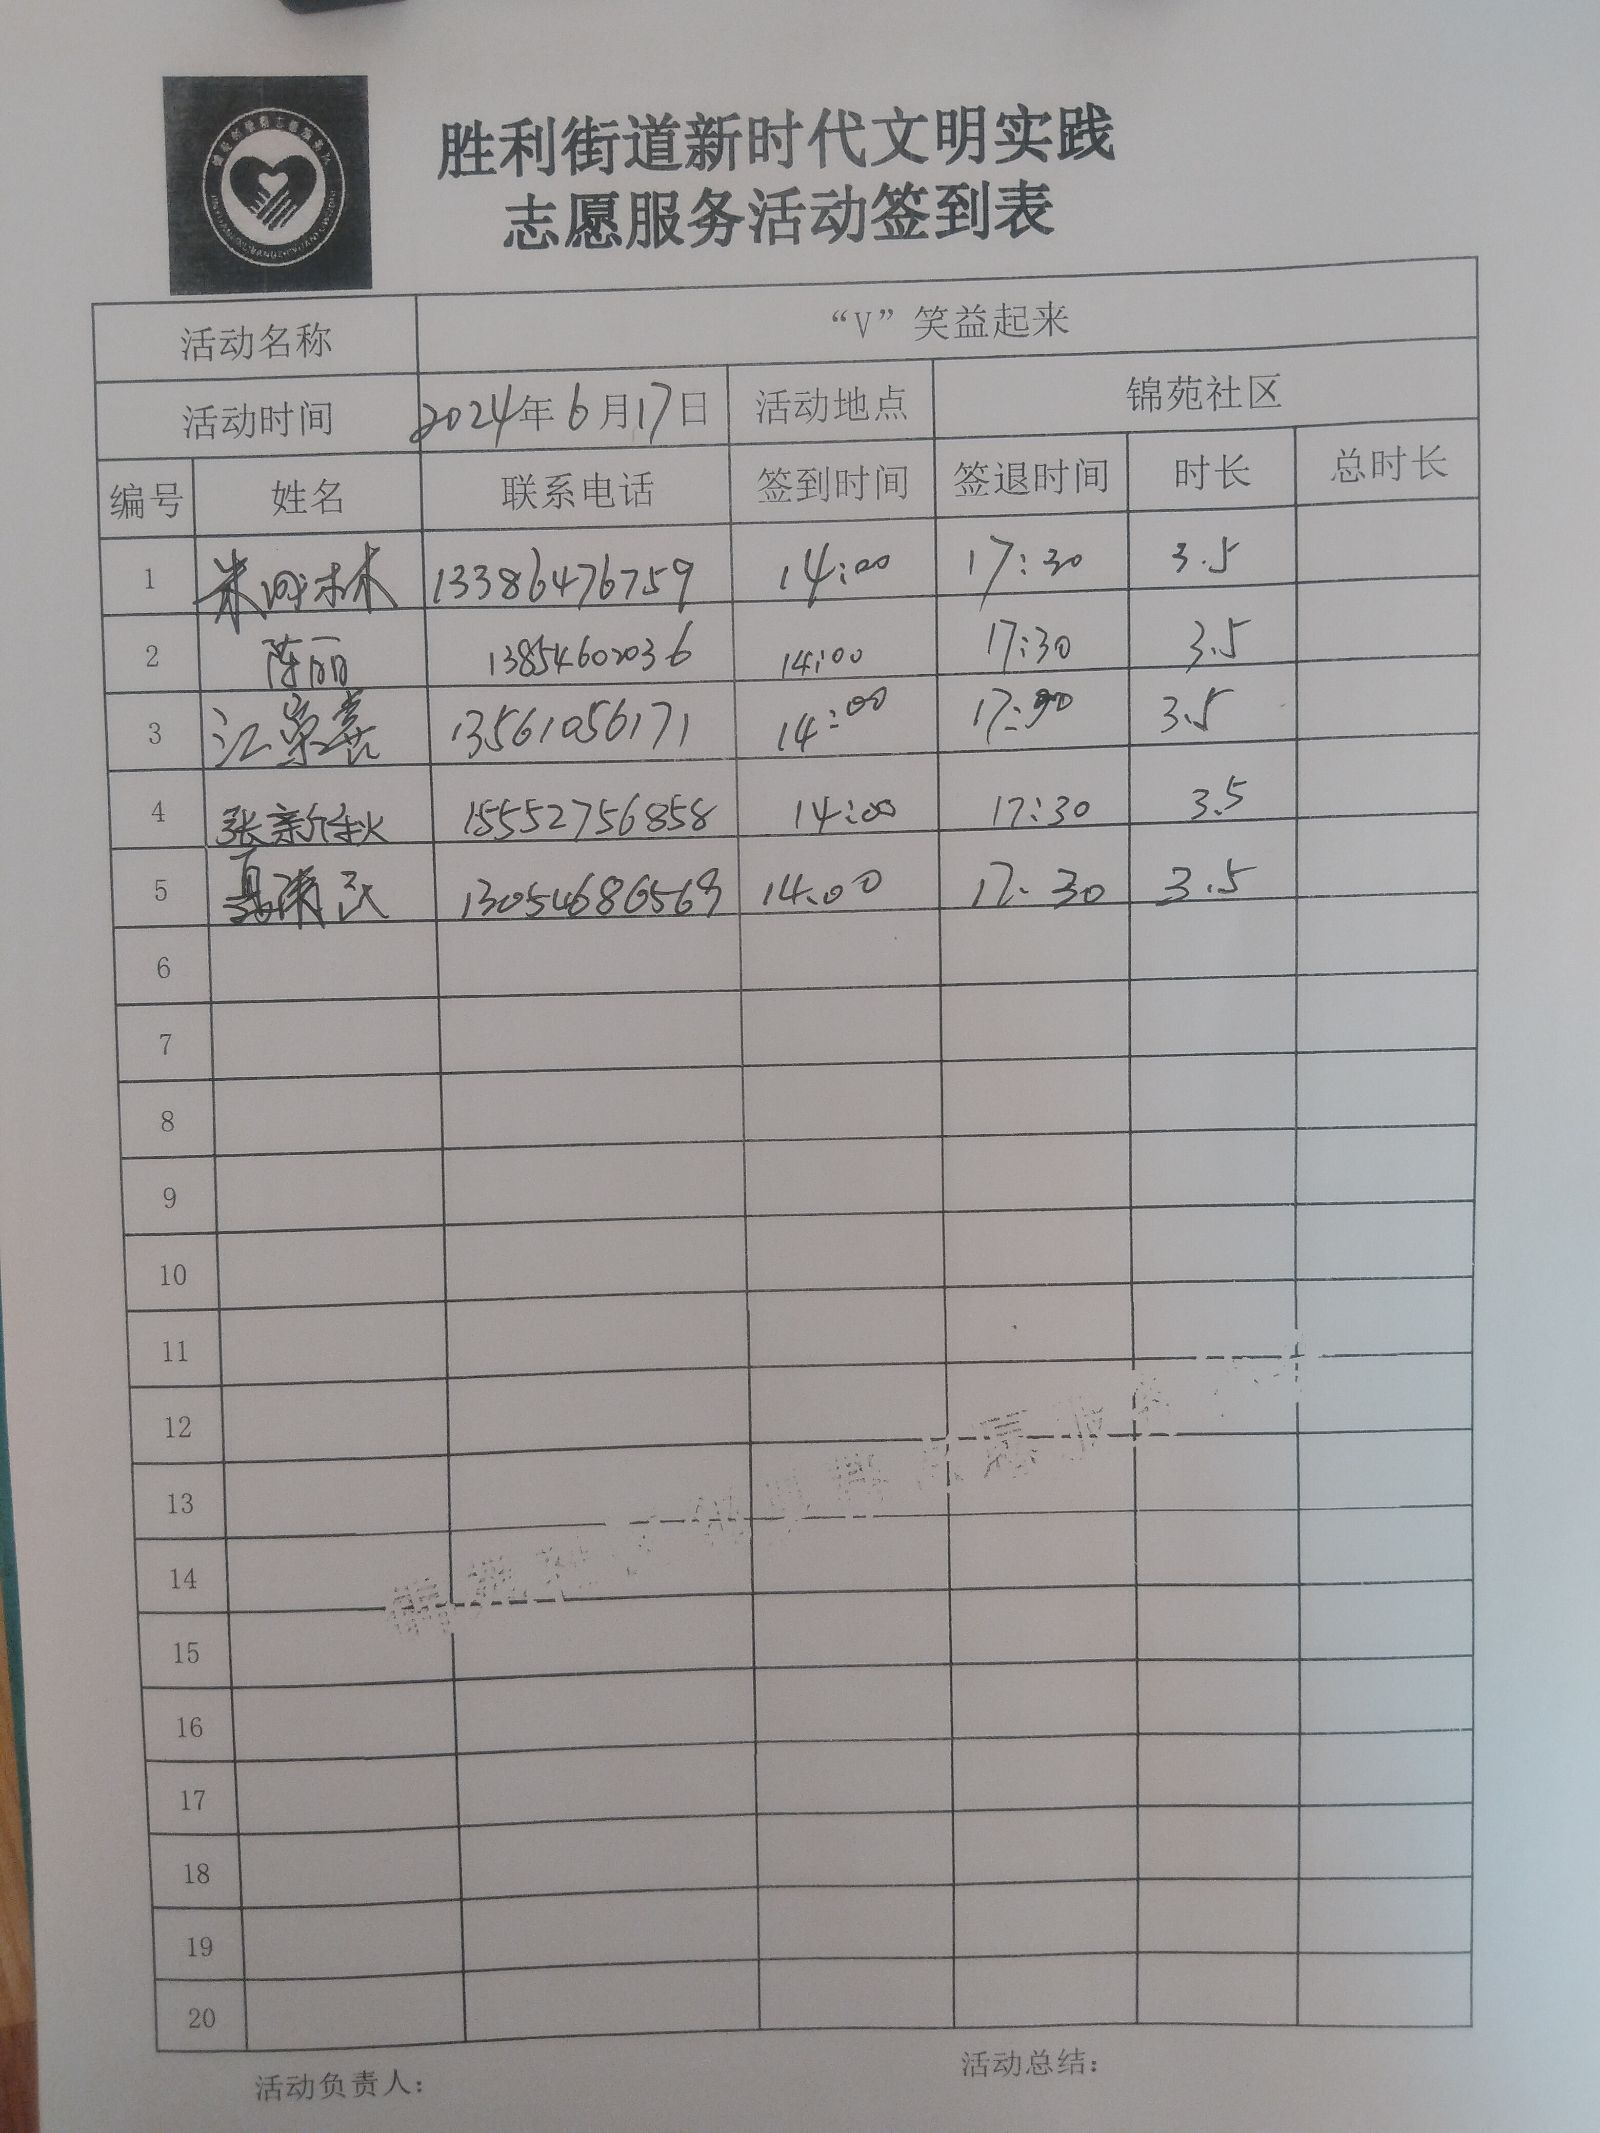 胜利街道新时代文明实践
志愿服务活动签到表
活动名称 “V”笑益起来
活动时间 2024年6月17日 活动地点 锦苑社区
编号 姓名 联系电话 签到时间 签退时间 时长 总时长
1 13386476759 14:00 17:30 3.5
2 陈丽 13854602036 14:00 17:30 3.5
3 江荣喜 13561056171 14:00 17:30 3.5
4 张新秋 15552756858 14:00 17:30 3.5
5 13054686569 14:00 17:30 3.5
6
7
8
9
10
11
12
13
14
15
16
17
18
19
20
活动负责人: 活动总结: